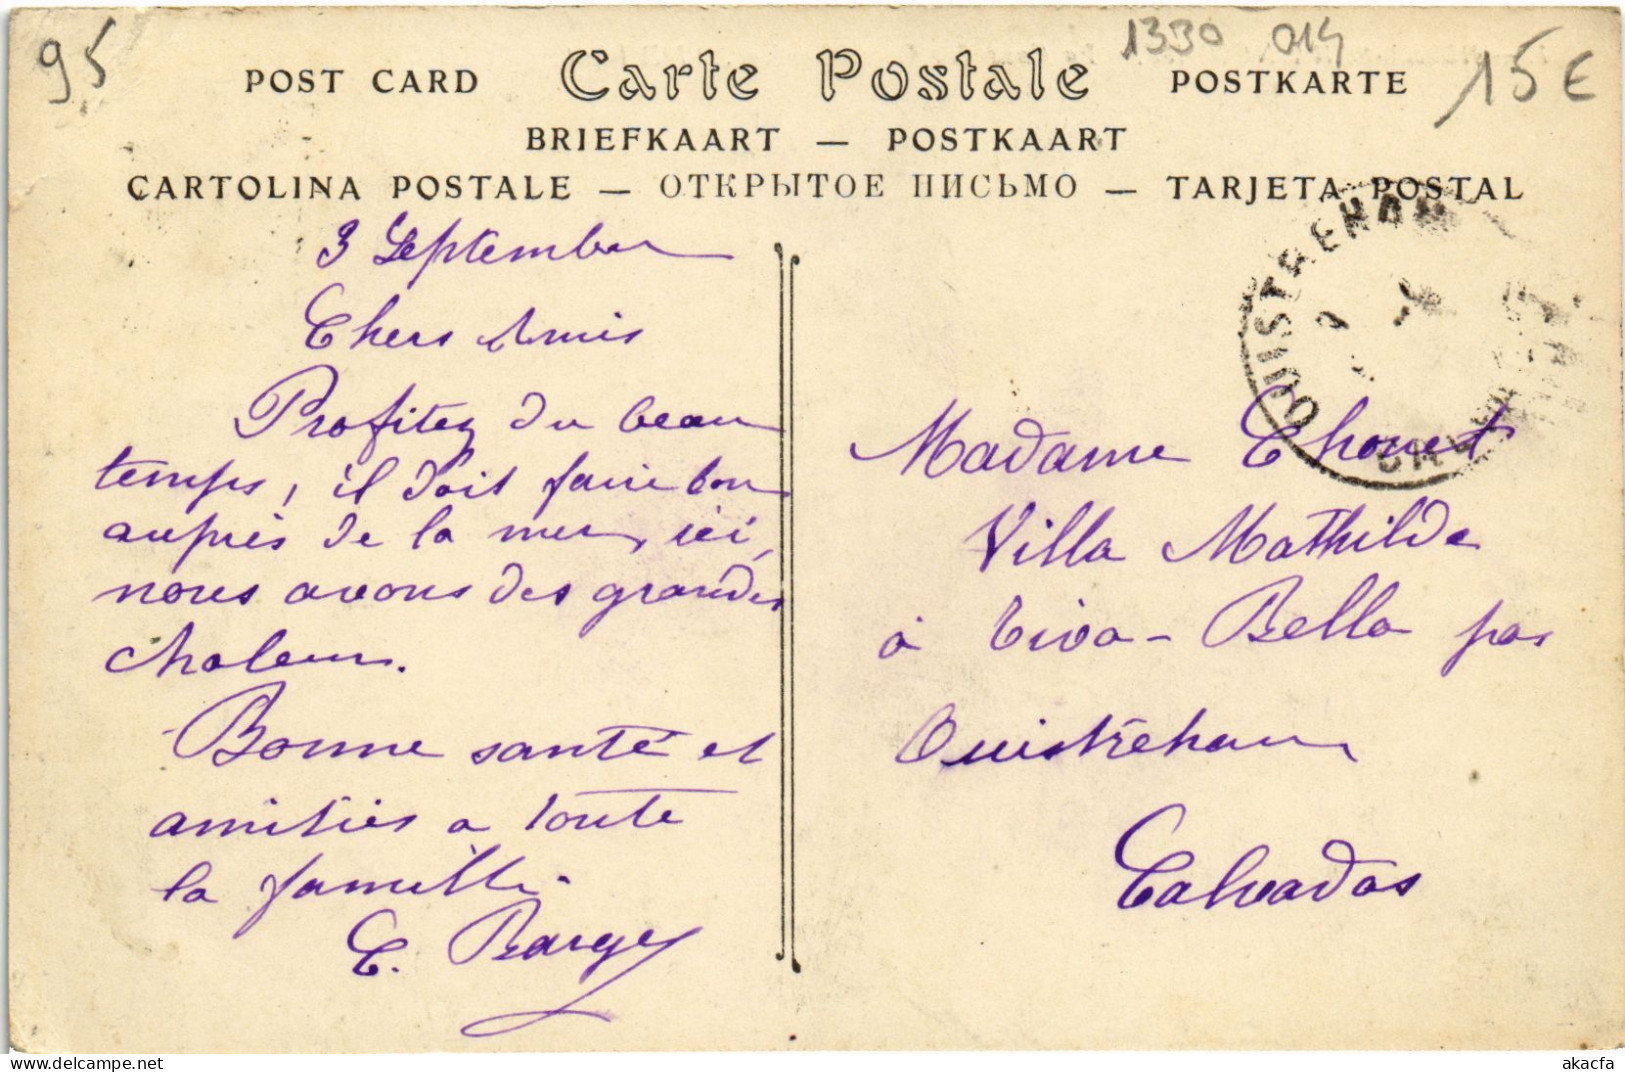 95
1330 014
15€
POST CARD Carte Postale POSTKARTE
BRIEFKAART — POSTKAART
CARTOLINA POSTALE — ОТКРЫТОЕ ПИСЬМО — TARJETA POSTAL
OUISTREHAM
3 Septembre
Chers Amis
Profitez du beau
temps, il doit faire bon
auprès de la mer, ici,
nous avons des grandes
chaleurs.
Bonne santé et
amitiés a toute
la famille.
E. Barge
Madame Chouet
Villa Mathilde
à Riva-Bella par
Ouistréham
Calvados
delcampe.net
akacfa